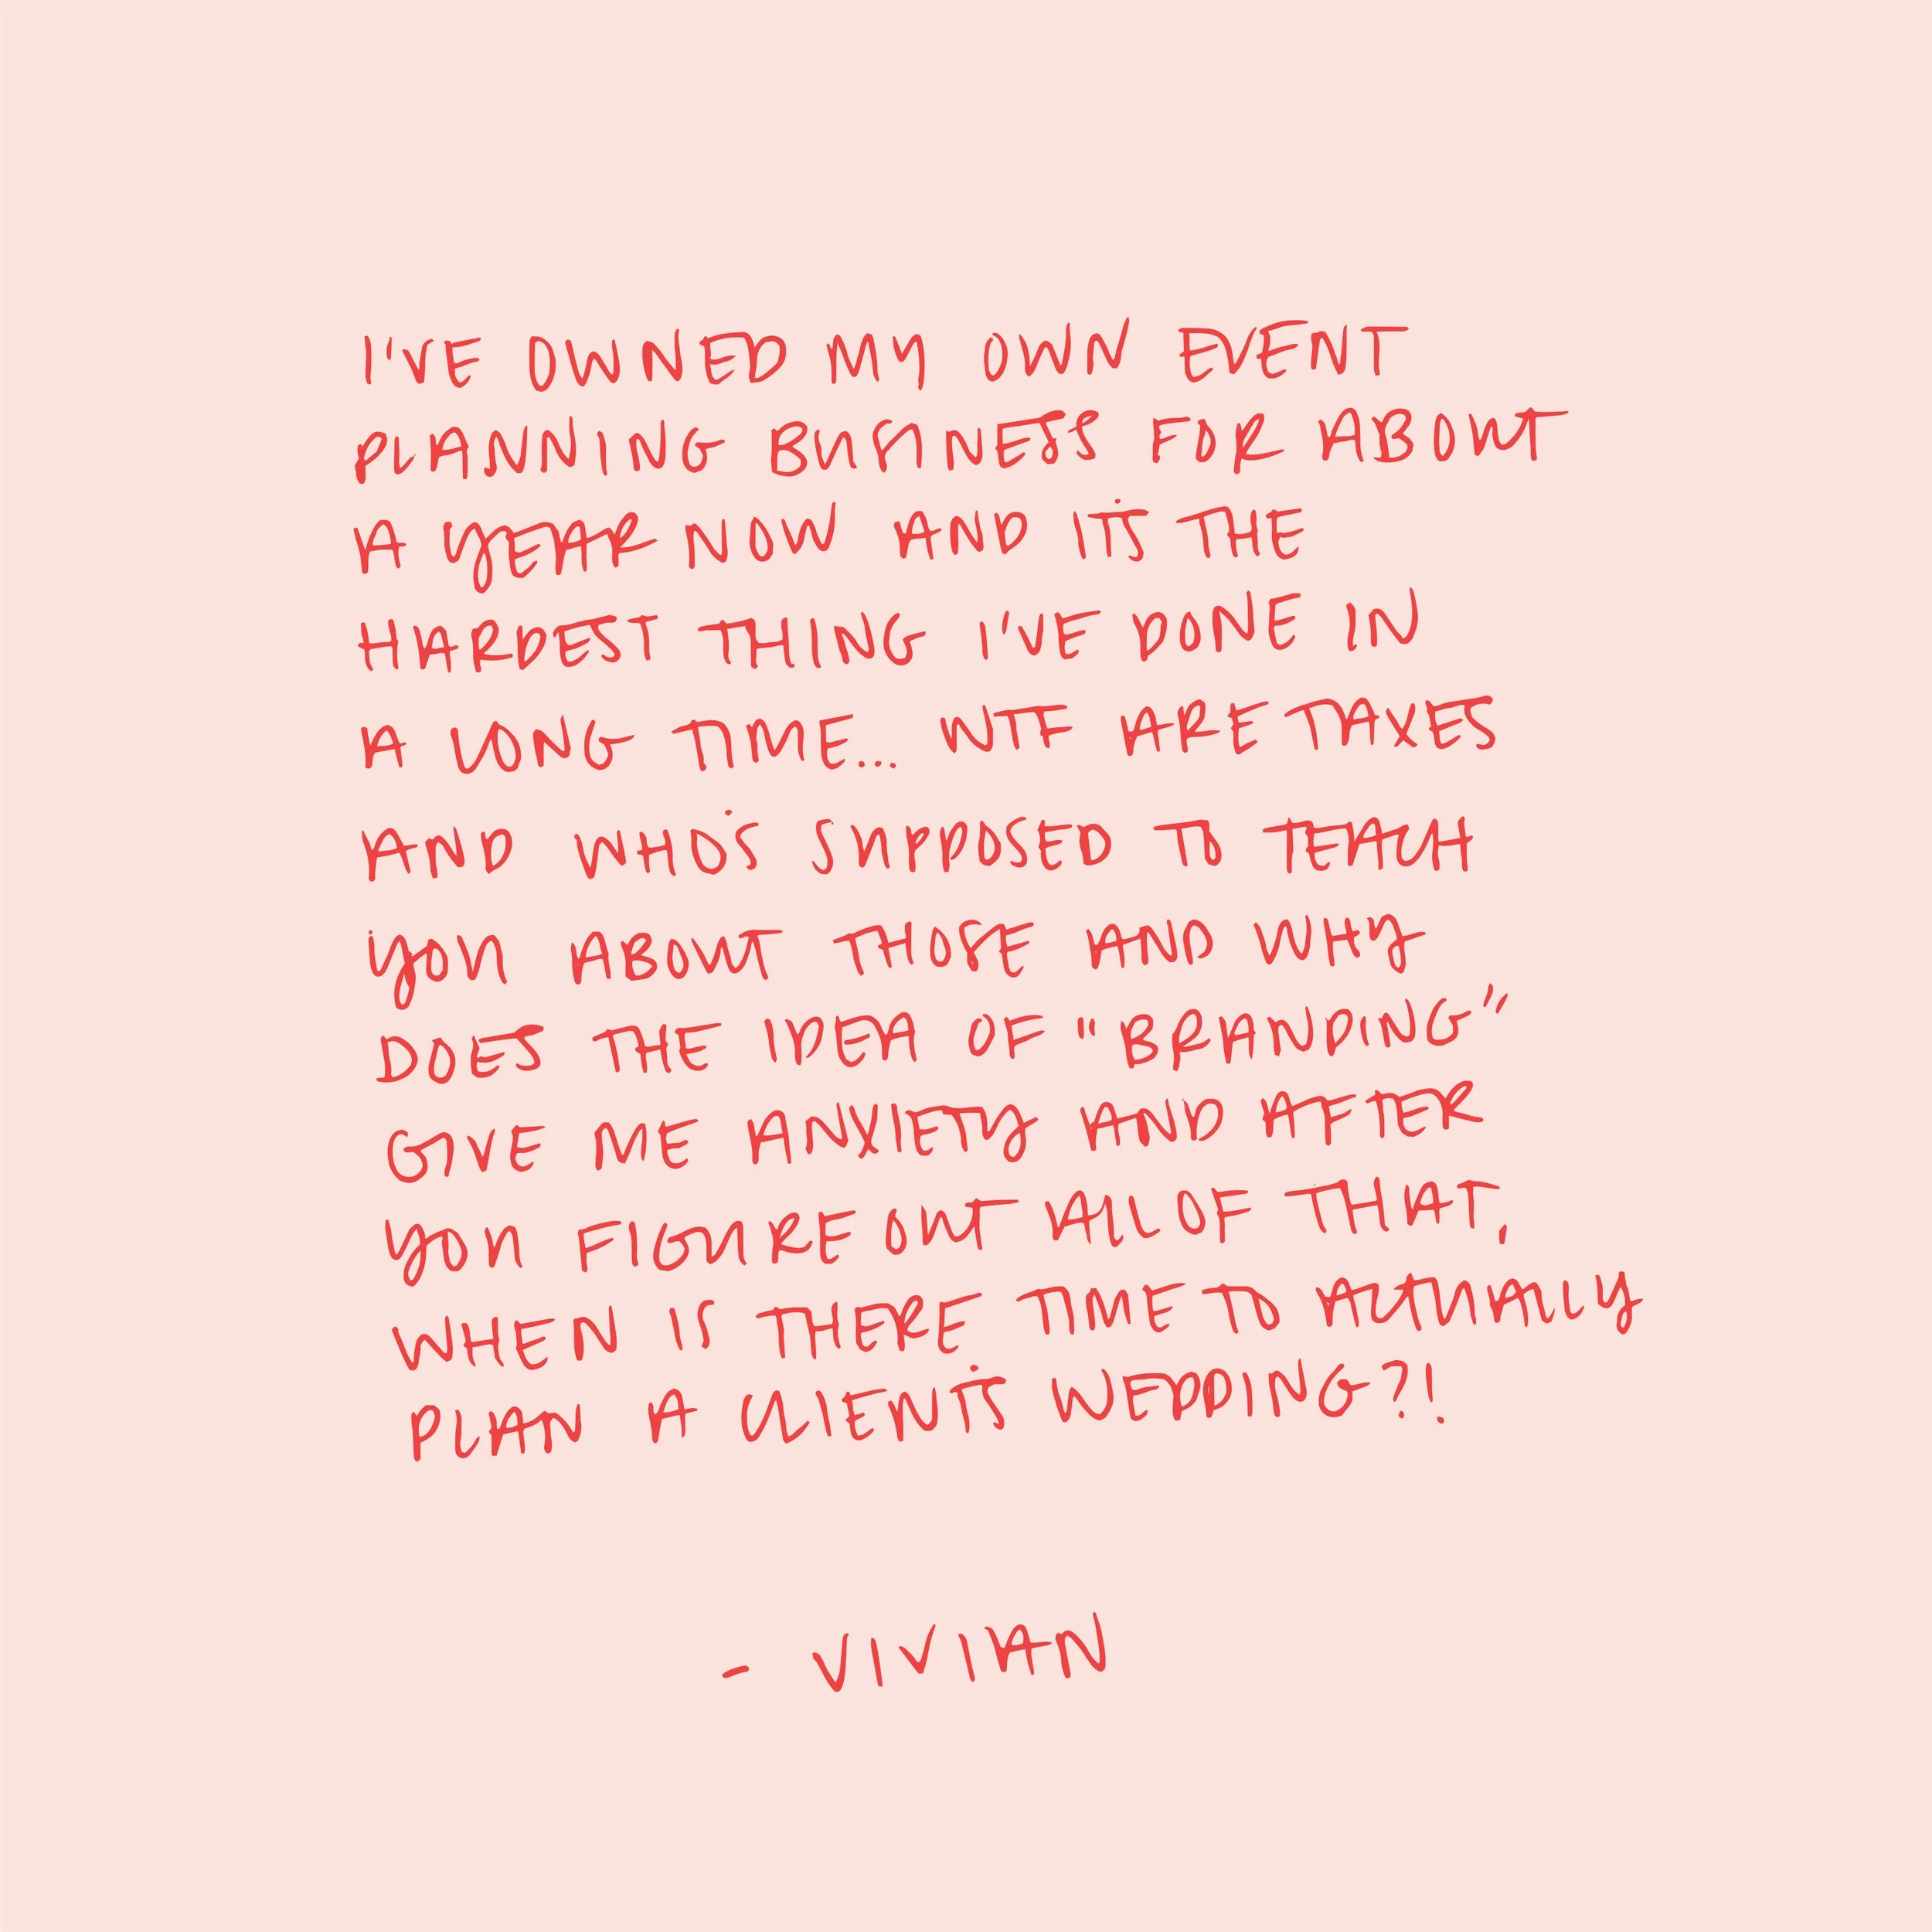 I'VE OWNED MY OWN EVENT
PLANNING BUSINESS FOR ABOUT
A YEAR NOW AND IT'S THE
HARDEST THING I'VE DONE IN
A LONG TIME... WTF ARE TAXES
AND WHO'S SUPPOSED TO TEACH
YOU ABOUT THOSE AND WHY
DOES THE IDEA OF "BRANDING"
GIVE ME ANXIETY AND AFTER
YOU FIGURE OUT ALL OF THAT,
WHEN IS THERE TIME TO ACTUALLY
PLAN A CLIENT'S WEDDING?!
- VIVIAN